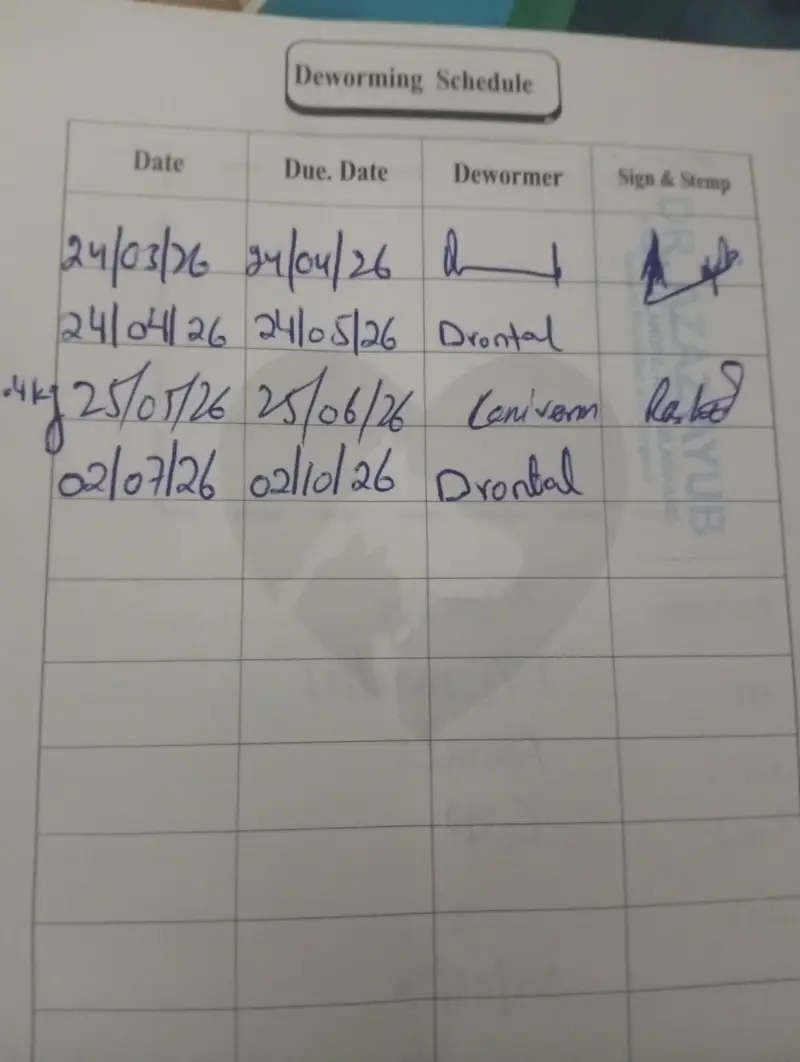 Deworming Schedule
Date Due. Date Dewormer Sign & Stemp
24/03/26 24/04/26
24/04/26 24/05/26 Drontal
.4kg 25/05/26 25/06/26 Caniverm
02/07/26 02/10/26 Drontal